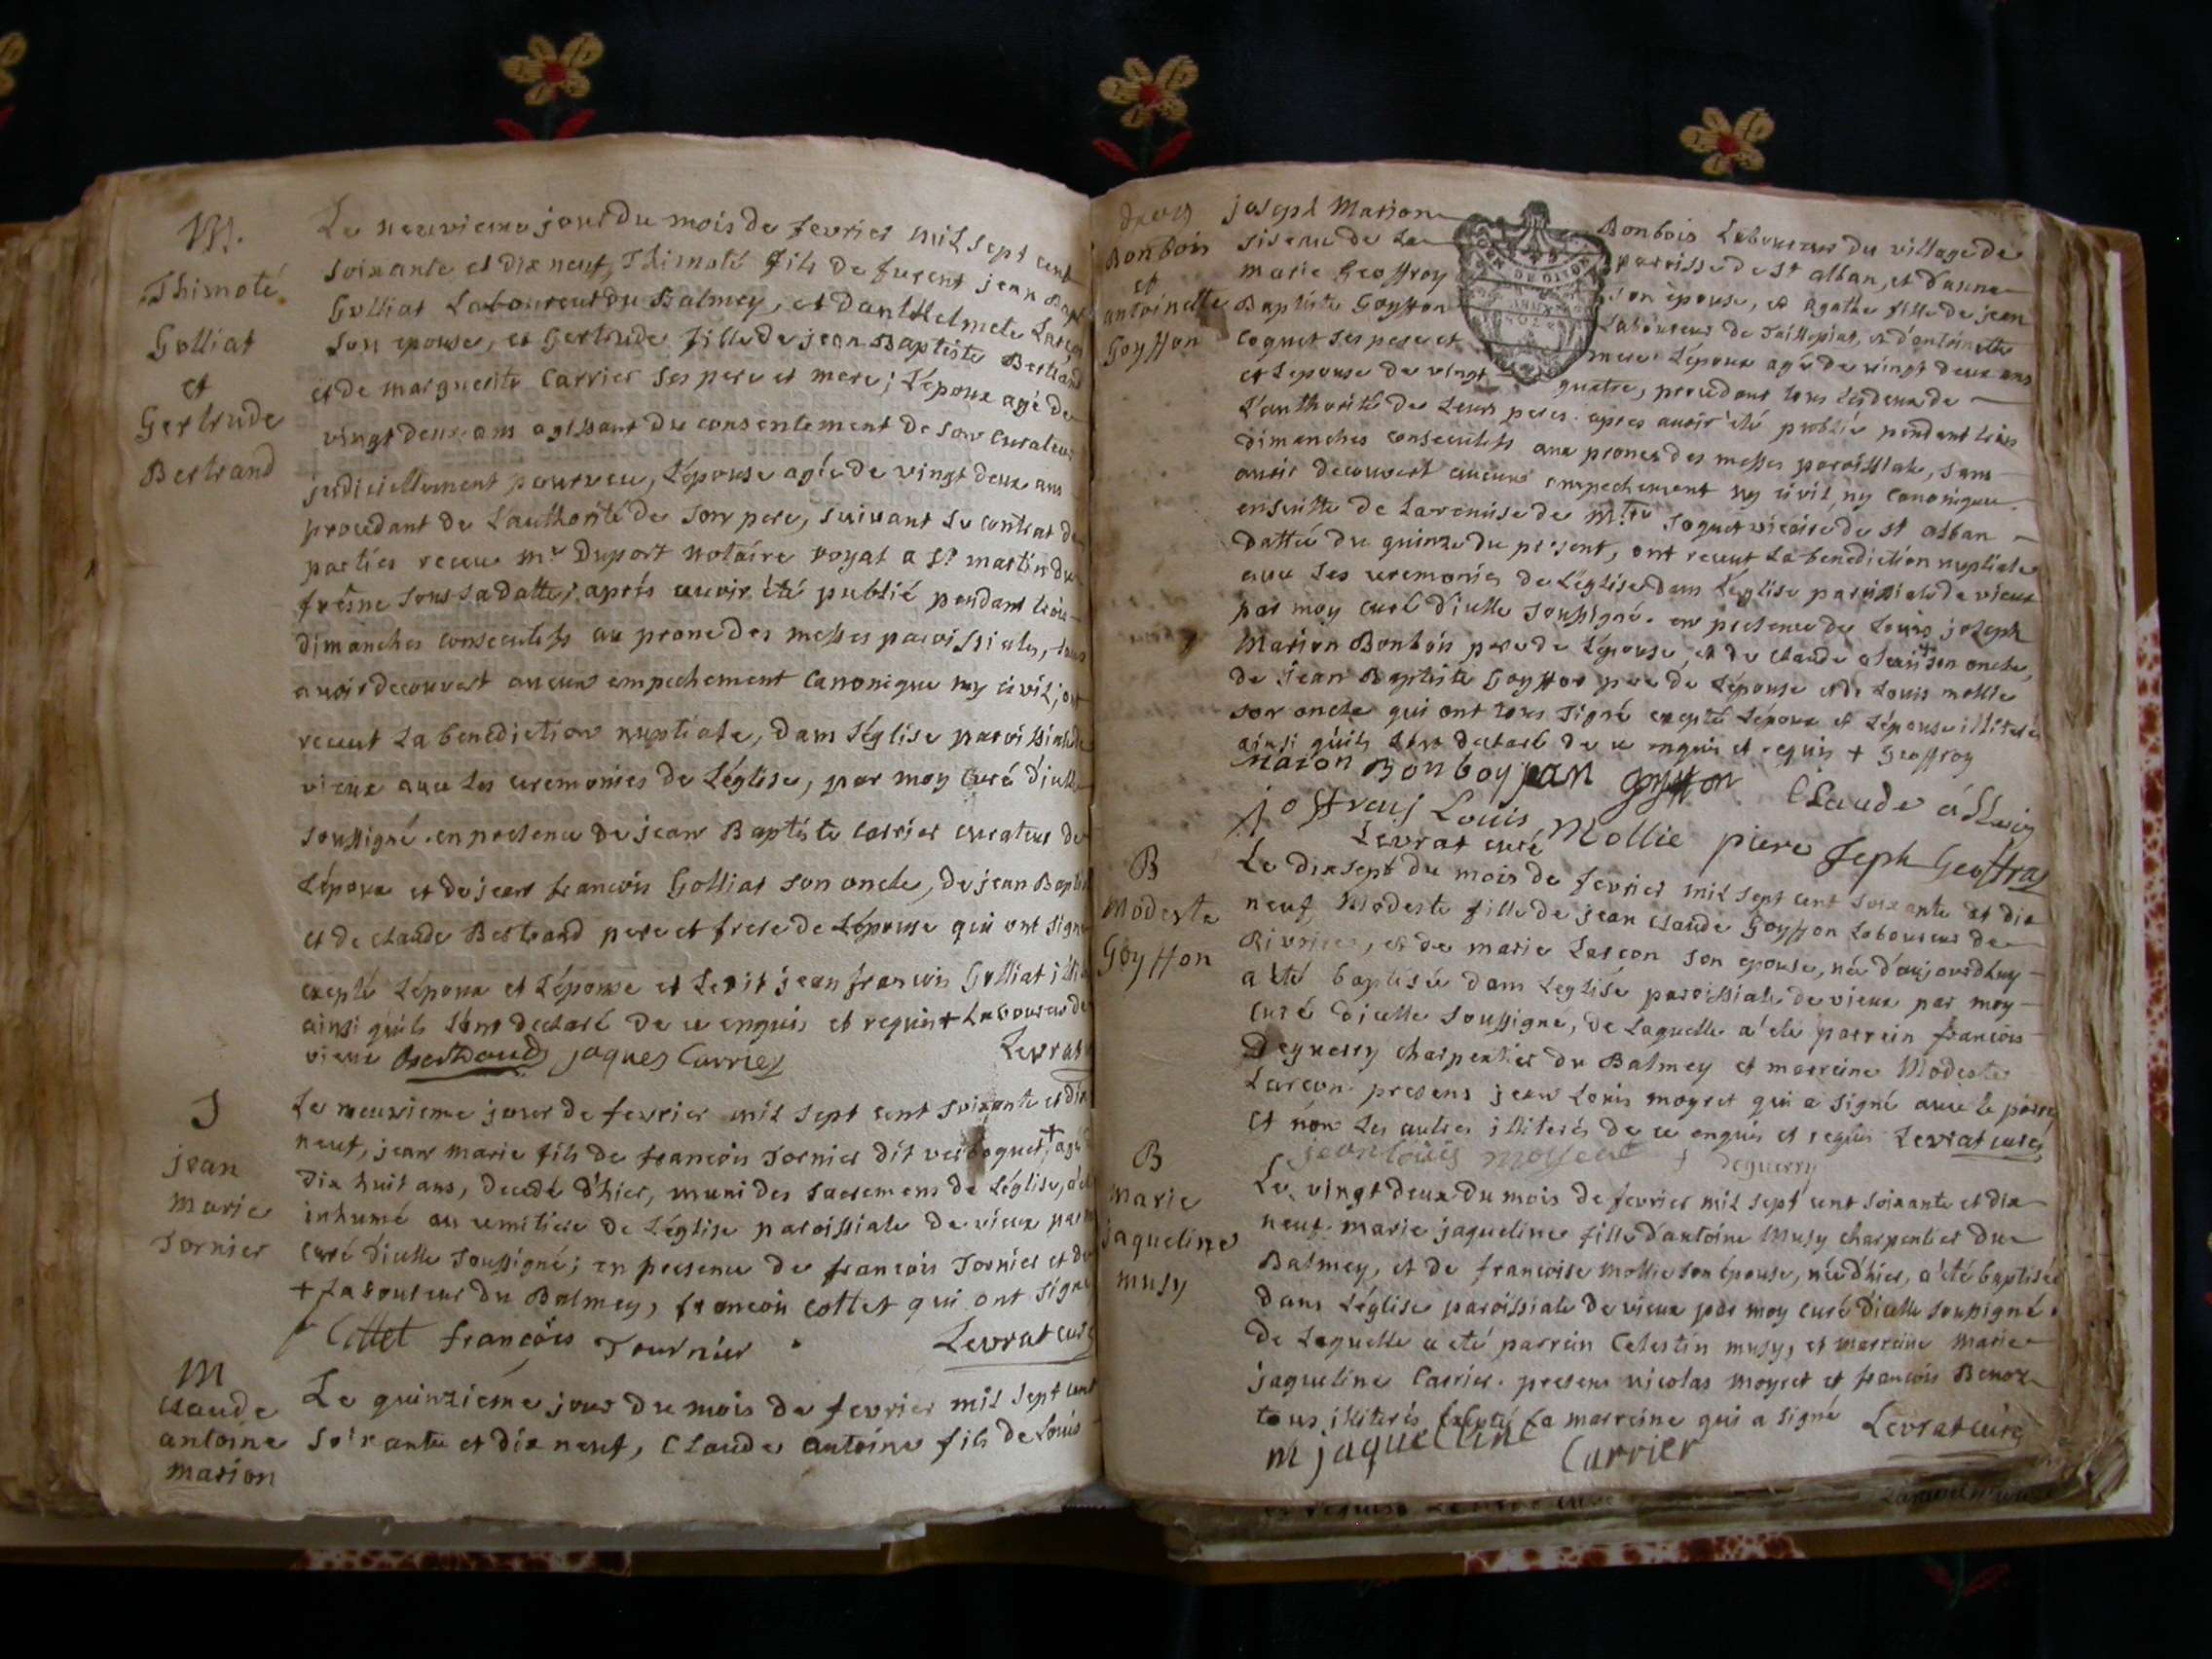 M.
Thimoté
Golliat
et
Gertrude
Bertrand
Le neuvieme jour du mois de fevrier mil sept cent
soixante et dix neuf, Thimoté fils de furent jean Bapt
Golliat Laboureur du Balmey, et d'anthelmete Larcon
son epouse, et Gertrude fille de jean Baptiste Bertrand
et de marguerite Carrier ses pere et mere; L'epoux agé de
vingt deux ans agissant du consentement de son Curateur
judiciellement pourveu, L'epouse agée de vingt deux ans
procedant de L'authorité de son pere, suivant Le contrat de
parties receu mr Duport notaire royal a St martin du
fresne sous sa datte; aprés avoir été publié pendant trois
dimanches consecutifs au prone des messes paroissiales, sans
avoir decouvert aucun empechement Canonique ny civil; ont
receut La benediction nuptiale, dans L'église paroissiale de
vieux avec Les ceremonies de L'église, par moy Curé d'icelle
soussigné. en presence de jean Baptiste Carrier curateur de
L'epoux et de jean francois Golliat son oncle, de jean Baptist
et de claude Bertrand pere et frere de L'epouse qui ont signé
excepté L'epoux et L'epouse et Ledit jean francois Golliat
ainsi qu'ils L'ont declaré de ce enquis et requis + Laboureur de
vieux Bertrand jaques Carrier Levrat
S
jean
marie
Tornier
Le neuvieme jour de fevrier mil sept cent soixante et dix
neuf, jean marie fils de francois Tornier dit verboquet, + agé
dix huit ans, decedé d'hier, muni des sacremens de L'église, a été
inhumé au cemitiere de L'église paroissiale de vieux par
curé d'icelle soussigné; en presence de francois Tornier et de
+ Laboureur du Balmey, francois cottet qui ont signé
Cottet francois Tournier Levrat curé
M
claude
antoine
marion
Le quinzieme jour du mois de fevrier mil sept cent
soixante et dix neuf, Claude antoine fils de Louis
Bonbois
et
antoinette
Goyffon
joseph Marion Bonbois Laboureur du village de
siseau de La parrisse de St alban, et d'anne
marie Geoffroy son épouse, et agathe fille de jean
Baptiste Goyffon Laboureur de Taillepiat, et d'antoinette
Coquet ses pere et mere L'époux agé de vingt deux ans
et L'epouse de vingt quatre, procedant tous Les deux de
L'authorité de Leurs peres. apres avoir été publié pendant trois
dimanches consecutifs aux prones des messes paroissiale, sans
avoir decouvert aucuns empechement ny civil, ny Canonique.
ensuitte de La remise de Mre Joguet vicaire de st alban
dattée du quinze du présent, ont receut La benediction nuptiale
avec Les ceremonies de L'église dans L'église paroissiale de vieux
par moy curé d'icelle soussigné. en presence de Louis joseph
Marion Bonbois pere de L'epouse, et de claude son oncle,
de jean Baptiste Goyffon pere de L'épouse et de Louis mollie
son oncle qui ont tous signé excepté L'époux et L'épouse illiteré
ainsi qu'ils L'ont declaré de ce enquis et requis + Geoffroy
Marion Bonboy jean goyffon Claude
joffray Louis Mollie piere Joseph Geoffray
Levrat curé
B
Modeste
Goyffon
Le dix sept du mois de fevrier mil sept cent soixante et dix
neuf, Modeste fille de jean claude Goyffon Laboureur de
, et de marie Larcon son epouse, née d'aujourdhuy
a été baptisée dans L'eglise paroissiale de vieux par moy
curé d'icelle soussigné, de Laquelle a été parrein francois
Deguerry charpentier du Balmey et marreine Modeste
Larcon. presens jean Louis moyret qui a signé avec le parre
et non Les autres illiterés de ce enquis et requis Levrat curé
jean louis moyret + deguerry
B
Marie
jaqueline
musy
Le vingt deux du mois de fevrier mil sept cent soixante et dix
neuf, marie jaqueline fille d'antoine Musy charpentier du
Balmey, et de francoise mollie son épouse, née d'hier, a été baptisée
dans L'église paroissiale de vieux par moy curé d'icelle soussigné.
de Laquelle a eté parrein Celestin musy, et marreine marie
jaqueline Carrier. presens nicolas moyret et francois Benox
tous illiterés, excepté La marreine qui a signé Levrat curé
m jaquelline Carrier